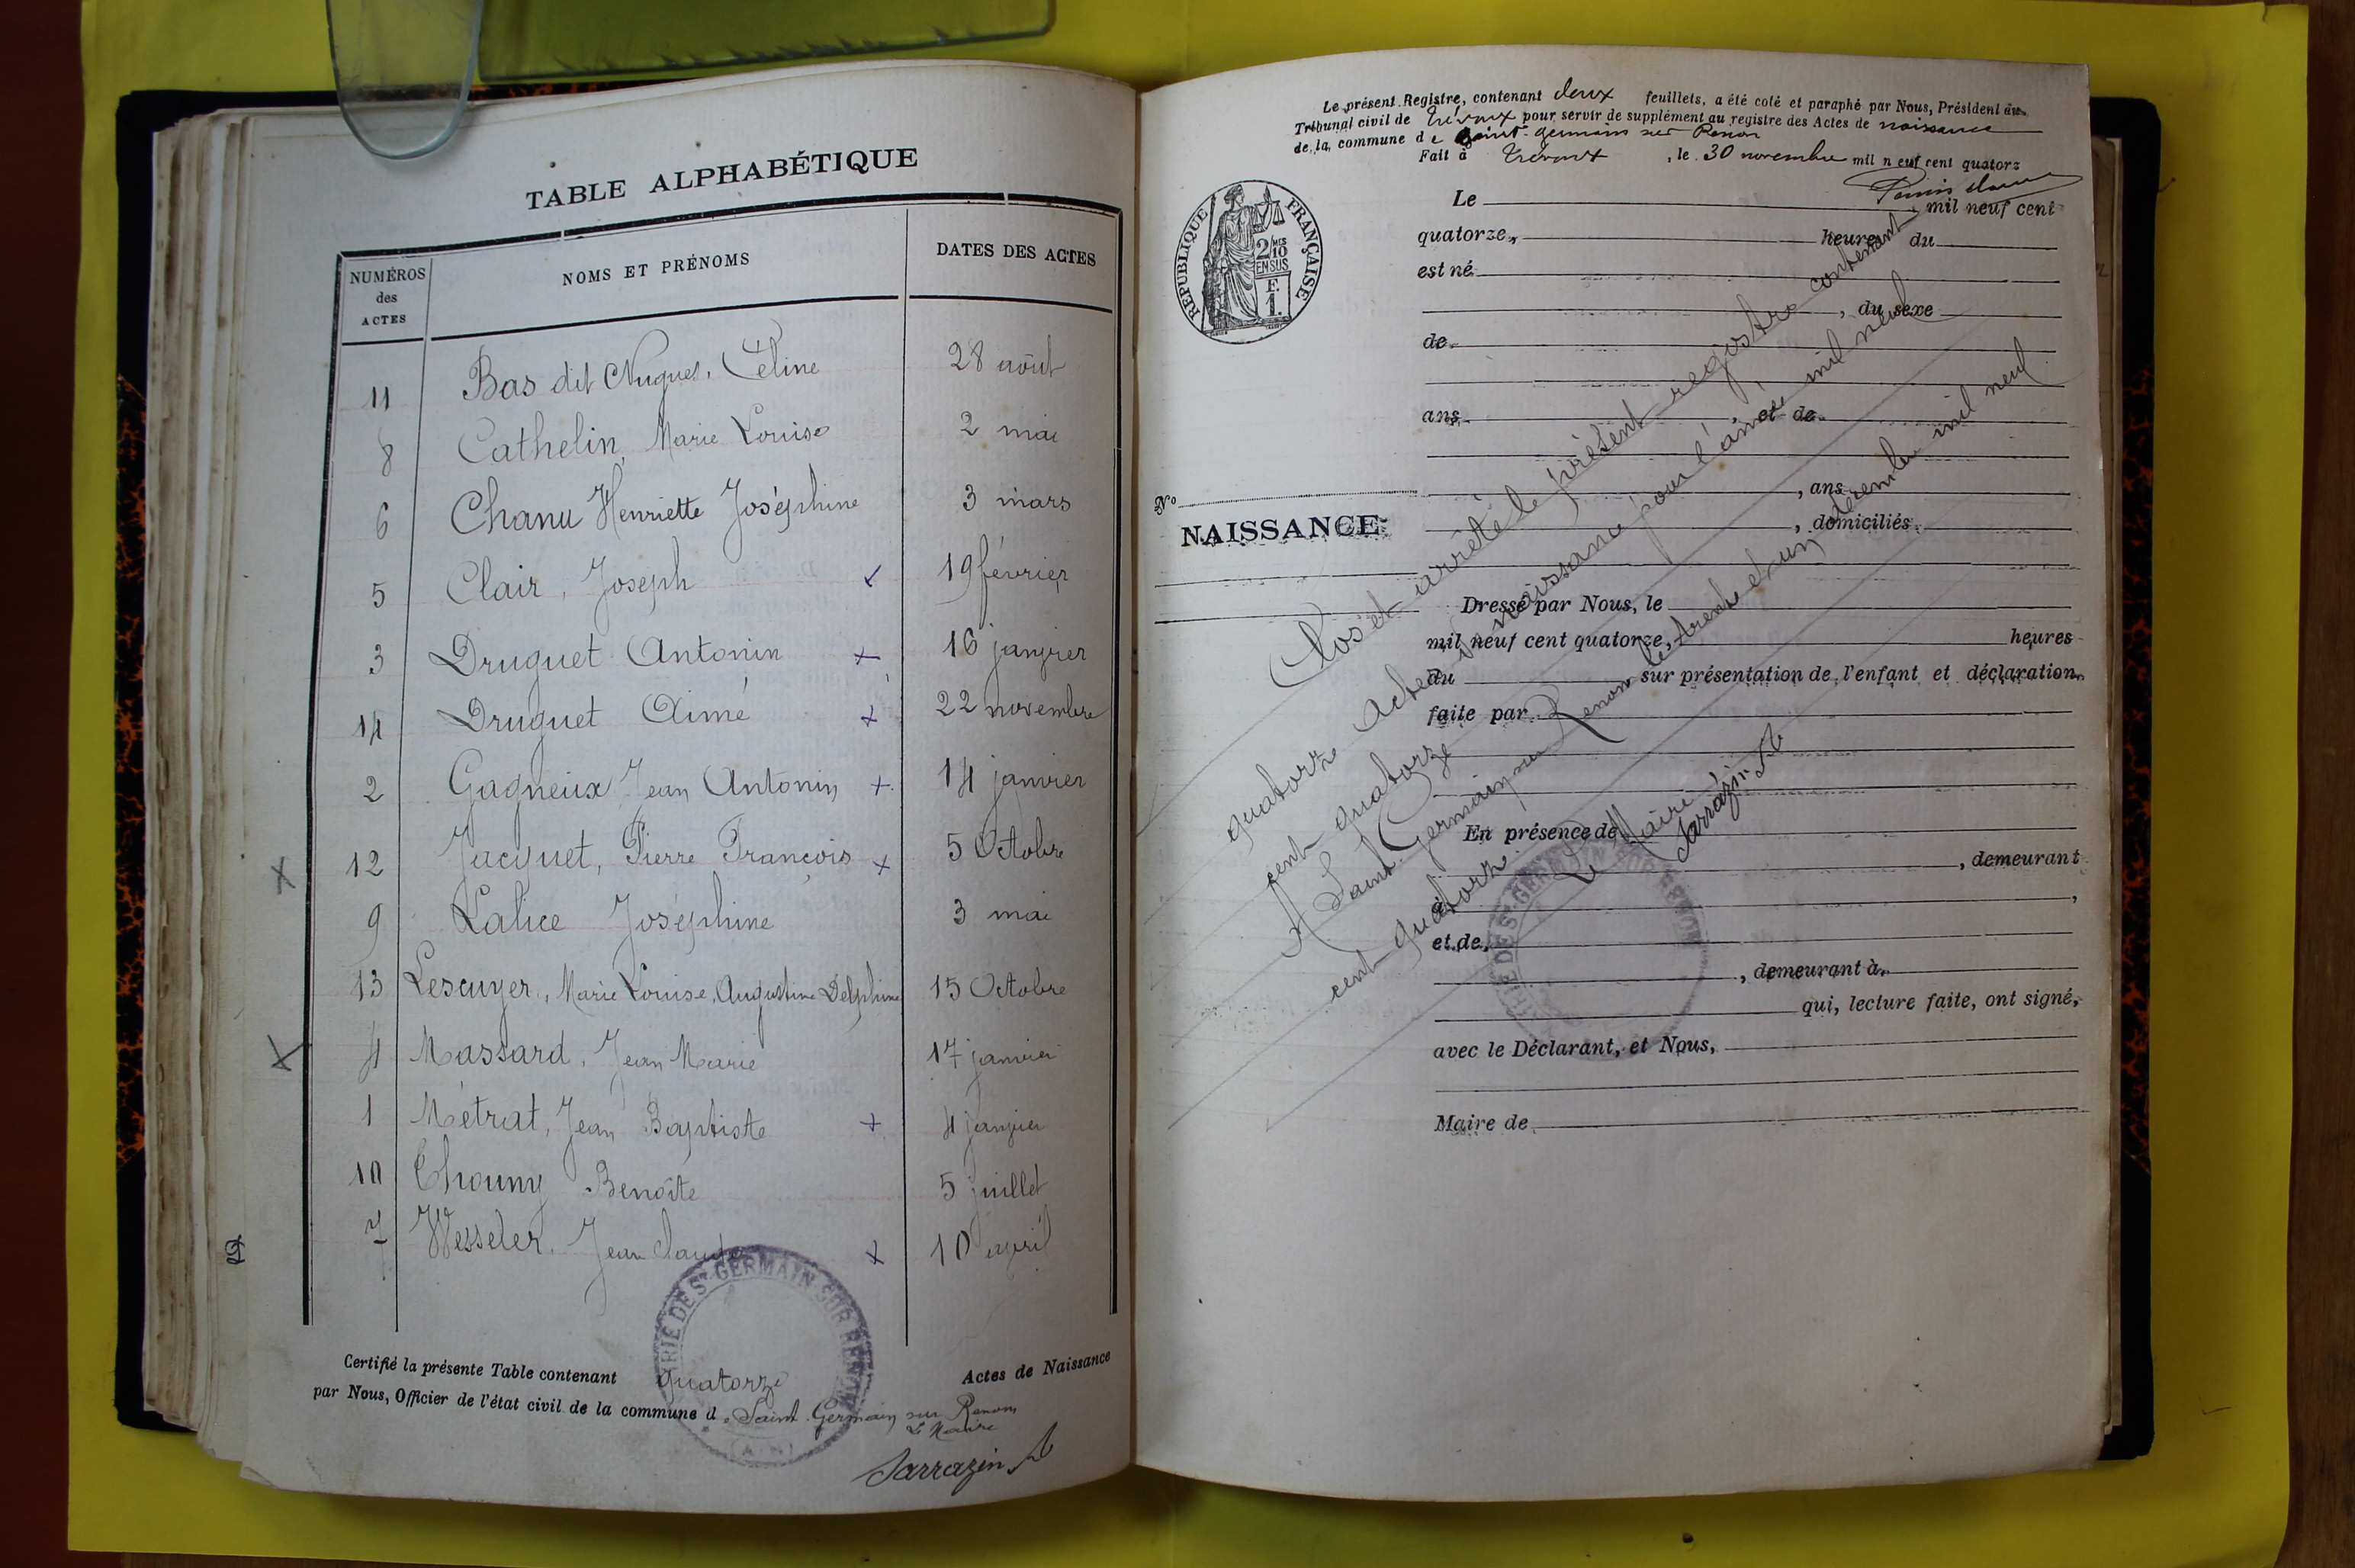 TABLE ALPHABÉTIQUE
NUMÉROS des ACTES NOMS ET PRÉNOMS DATES DES ACTES
11 Bas dit Nugues, Céline 28 août
8 Cathelin, Marie Louise 2 mai
6 Chanu Henriette Joséphine 3 mars
5 Clair, Joseph 19 février
3 Druguet Antonin + 16 janvier
14 Druguet Aimé + 22 novembre
2 Gagneux Jean Antonin + 14 janvier
+ 12 Jacquet, Pierre François + 5 Octobre
9 Lalice Joséphine 3 mai
13 Lescuyer, Marie Louise, Augustine Delphine 15 Octobre
+ 4 Massard, Jean Marie 17 janvier
1 Métrat, Jean Baptiste + 4 janvier
10 Benoîte 5 juillet
7 Wesseler, Jean Claude + 10 avril
MAIRIE DE ST GERMAIN SUR RENON
(AIN)
Certifié la présente Table contenant quatorze Actes de Naissance
par Nous, Officier de l'état civil de la commune de Saint Germain sur Renon
Le Maire
Sarrazin
Le présent Registre, contenant deux feuillets, a été coté et paraphé par Nous, Président du
Tribunal civil de Trévoux pour servir de supplément au registre des Actes de naissance
de la commune de Saint-Germain sur Renon
Fait à Trévoux, le 30 novembre mil neuf cent quatorz
RÉPUBLIQUE FRANÇAISE
2/10 MES
EN SUS
F.
1.
Le mil neuf cent
quatorze, heures du
est né
, du sexe
de
ans, et de
, ans
N°
NAISSANCE
, domiciliés
Dressé par Nous, le
mil neuf cent quatorze, heures
du sur présentation de l'enfant et déclaration
faite par
En présence de
, demeurant
à ,
et de
, demeurant à
qui, lecture faite, ont signé,
avec le Déclarant, et Nous,
Maire de
Clos et arrêté le présent registre contenant
quatorze actes de naissance pour l'année mil neuf
cent quatorze
A Saint Germain sur Renon le trente et un décembre mil neuf
cent quatorze.
Le Maire
Sarrazin
MAIRIE DE ST GERMAIN SUR RENON